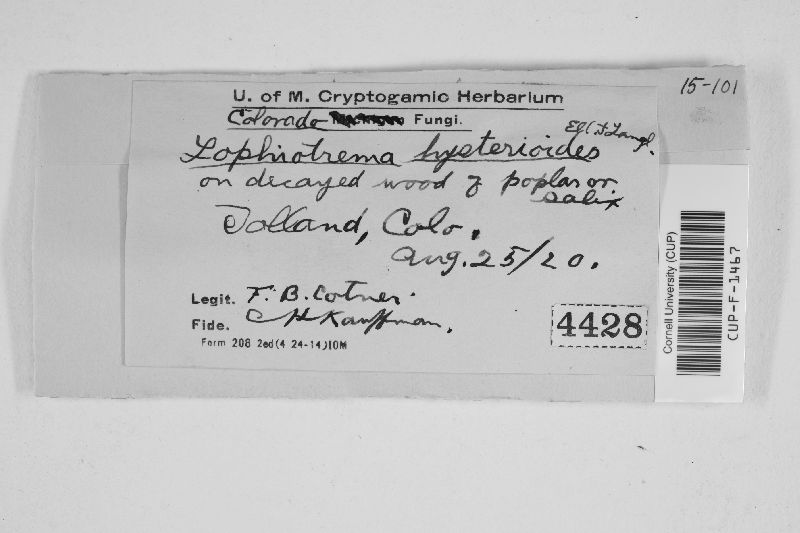 15-101
U. of M. Cryptogamic Herbarium
Colorado Fungi.
Lophiotrema hysterioides Ell & Langl.
on decayed wood of poplar or
Salix
Tolland, Colo.
Aug. 25/20.
Legit. F. B. Cotner.
Fide. C H Kauffman.
4428
Form 208 2ed(4 24-14)10M
Cornell University (CUP)
CUP-F-1467